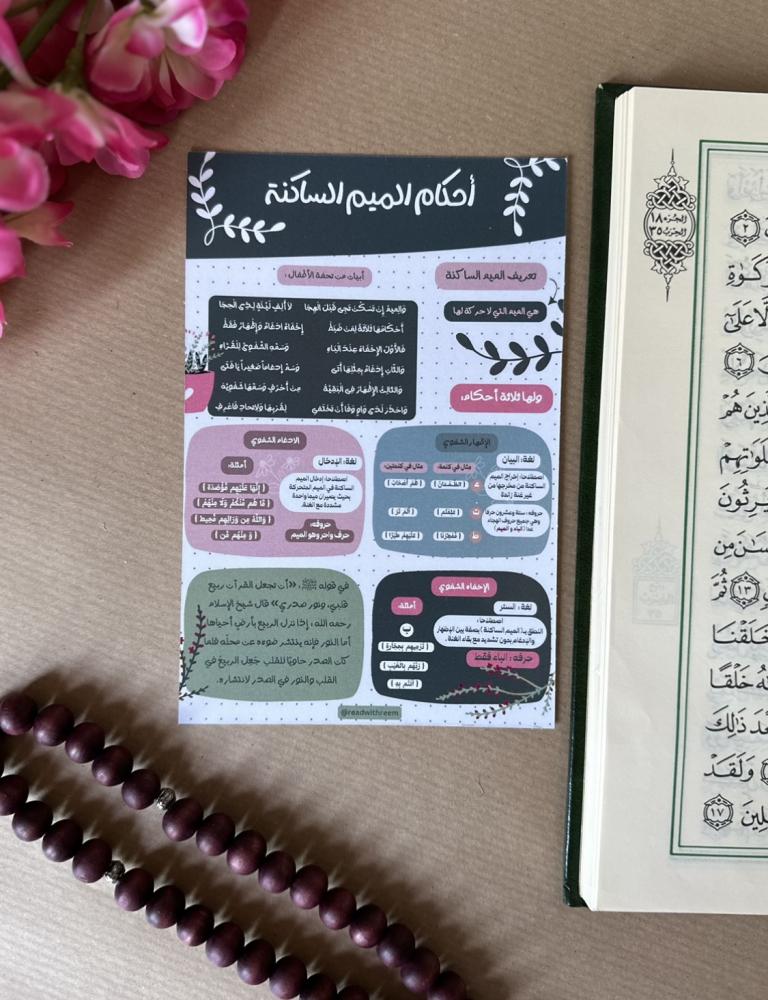 أحكام الميم الساكنة
تعريف الميم الساكنة
هي الميم التي لا حركة لها
ولها ثلاثة أحكام:
أبيات من تحفة الأطفال:
وَالمِيمُ إِن تَسكُن تَجِي قَبلَ الهِجَا لا أَلِفٍ لَيِّنَةٍ لِذِي الحِجَا
أَحكَامُهَا ثَلَاثَةٌ لِمَن ضَبَط إِخفَاءٌ ادغَامٌ وَإِظهَارٌ فَقَط
فَالأَوَّلُ الإِخفَاءُ عِندَ البَاءِ وَسَمِّهِ الشَّفوِيَّ لِلقُرَّاءِ
وَالثَّانِ إِدغَامٌ بِمِثلِهَا أَتَى وَسَمِّ إِدغَاماً صَغِيراً يَا فَتَى
وَالثَّالِثُ الإِظهَارُ فِي البَقِيَّة مِن أَحرُفٍ وَسَمِّهَا شَفوِيَّة
وَاحذَر لَدَى وَاوٍ وَفَا أَن تَختَفِي لِقُربِهَا وَلاتحادِ فَاعرِفِ
الإظهار الشفوي
لغة: البيان
اصطلاحا: إخراج الميم
الساكنة من مخرجها من
غير غنة زائدة
حروفه: ستة وعشرون حرفا
وهي جميع حروف الهجاء
عدا (الباء و الميم)
مثال في كلمة: مثال في كلمتين:
الادغام الشفوي
لغة: الإدخال
اصطلاحا: إدخال الميم
الساكنة في الميم المتحركة
بحيث يصيران ميما واحدة
مشددة مع الغنة.
حروفه:
حرف واحر وهو الميم
أمثلة:
( إِنَّهَا عَلَيْهِم مُّوْصَدَةٌ )
( مَّا هُم مِّنكُمْ وَلَا مِنْهُمْ )
( وَاللَّهُ مِن وَرَائِهِم مُّحِيطٌ )
( وَ مِنْهُم مَّن )
الإخفاء الشفوي
لغة: الستر
اصطلاحا:
النطق بـ( الميم الساكنة ) بصفة بين الإظهار
والإدغام بدون تشديد مع بقاء الغنة.
حرفه: الباء فقط
أمثلة:
ب
( تَرْمِيهِم بِحِجَارَةٍ )
( رَبَّهُم بِالْغَيْبِ )
( أَنتُم بِهِ )
في قوله ﷺ: «أن تجعل القرآن ربيع
قلبي، ونور صدري» قال شيخ الإسلام
رحمه الله: إذا نزل الربيع بأرضٍ أحياها
أما النور فإنه ينتشر ضوءه عن محلّه فلما
كان الصدر حاويًا للقلب جَعل الربيعَ في
القلب والنور في الصدر لانتشاره.
@readwithreem
الجزء ١٨
الحزب ٣٥